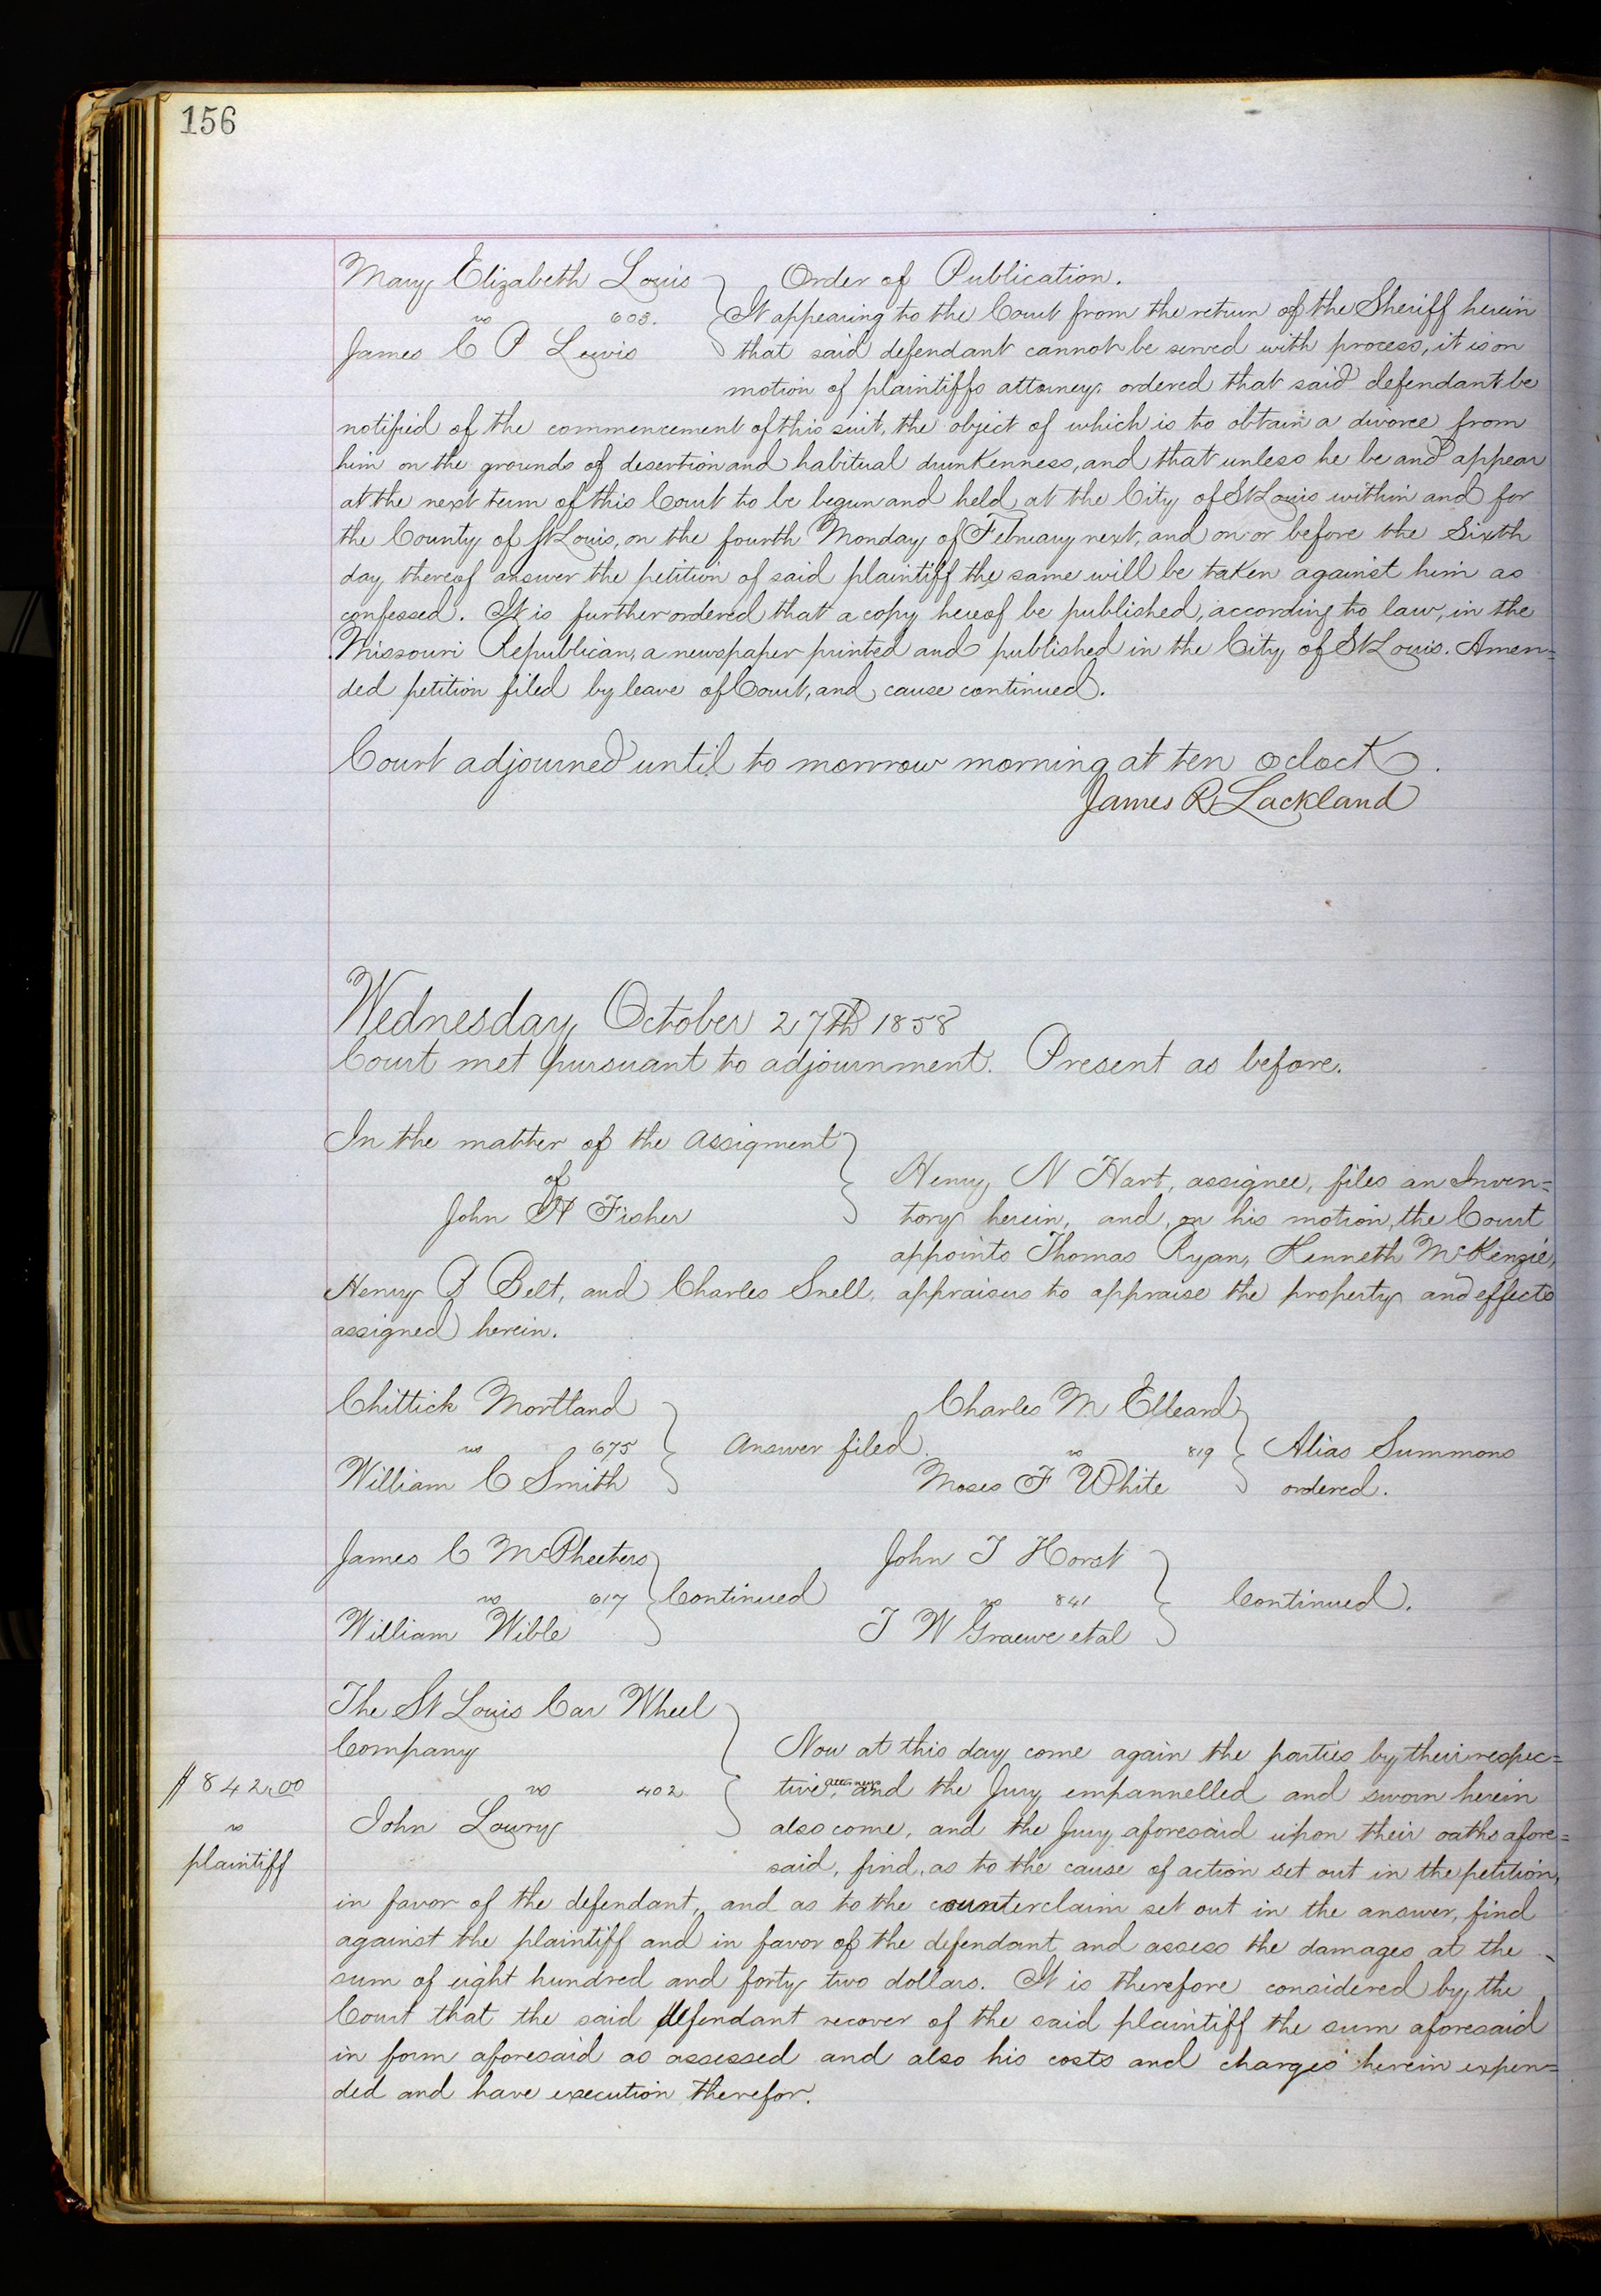 156
Mary Elizabeth Louis } Order of Publication.
vs 603. It appearing to the Court from the return of the Sheriff herein
James C P Lewis that said defendant cannot be served with process, it is on
motion of plaintiffs attorney, ordered that said defendant be
notified of the commencement of this suit, the object of which is to obtain a divorce from
him on the grounds of desertion and habitual drunkenness, and that unless he be and appear
at the next term of this Court to be begun and held, at the City of St Louis within and for
the County of St Louis, on the fourth Monday of February next, and on or before the Sixth
day thereof answer the petition of said plaintiff the same will be taken against him as
confessed. It is further ordered that a copy hereof be published, according to law, in the
Missouri Republican, a newspaper printed and published in the City of St Louis. Amen=
ded petition filed by leave of Court, and cause continued.
Court adjourned until to morrow morning at ten oclock.
James R Lackland
Wednesday October 27th 1858
Court met pursuant to adjournment. Present as before.
In the matter of the assigment
of
John H Fisher
Henry N Hart, assignee, files an Inven=
tory herein, and, on his motion, the Court
appoints Thomas Ryan, Kenneth McKenzie,
Henry B Belt, and Charles Snell, appraisers to appraise the property and effects
assigned herein.
Chittick Mortland
vs 675 } Answer filed.
William C Smith
Charles M Elleard
vs 819 } Alias Summons
Moses F White ordered.
James C McPheeters
vs 617 } Continued
William Wible
John T Horst
vs 841 } Continued.
T W Graewe et al
The St Louis Car Wheel
Company
vs 402
John Lowry
$842.00
vs
plaintiff
Now at this day come again the parties by their respec=
tive attorneys, and the Jury empannelled and sworn herein
also come, and the Jury aforesaid upon their oaths afore=
said, find, as to the cause of action set out in the petition,
in favor of the defendant, and as to the counterclaim set out in the answer, find
against the plaintiff and in favor of the defendant and assess the damages at the
sum of eight hundred and forty two dollars. It is therefore considered by the
Court that the said defendant recover of the said plaintiff the sum aforesaid
in form aforesaid as assessed and also his costs and charges herein expen=
ded and have execution therefor.